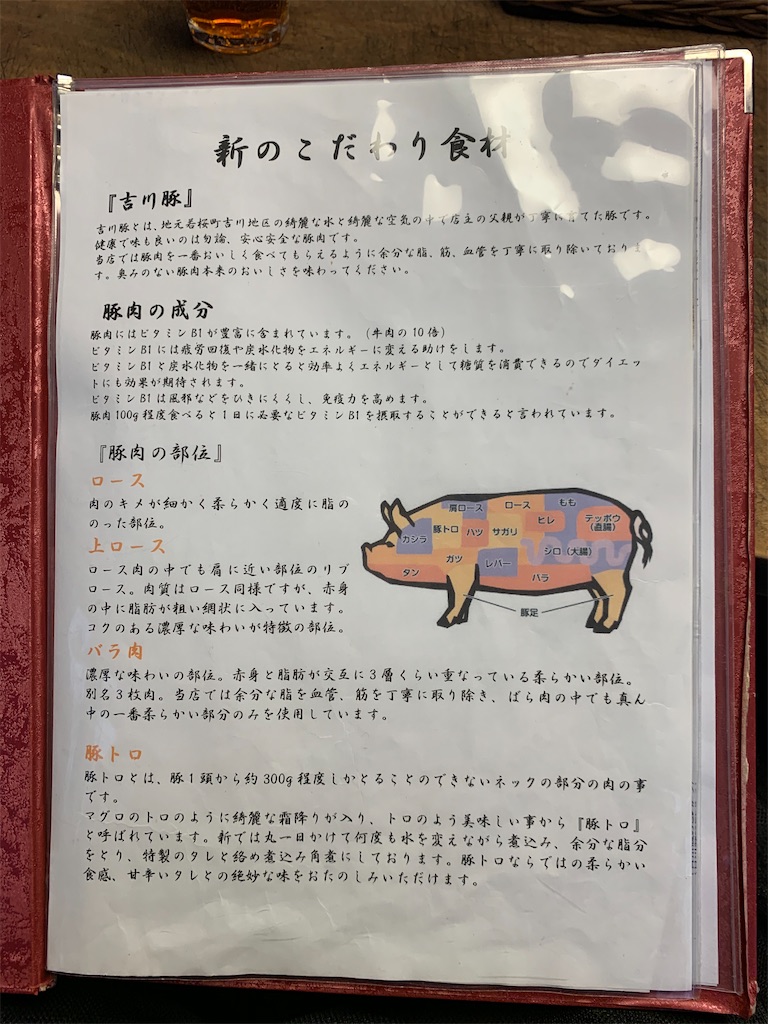 新のこだわり食材
『吉川豚』
吉川豚とは、地元若桜町吉川地区の綺麗な水と綺麗な空気の中で店主の父親が丁寧に育てた豚です。
健康で味も良いのは勿論、安心安全な豚肉です。
当店では豚肉を一番おいしく食べてもらえるように余分な脂、筋、血管を丁寧に取り除いておりま
す。臭みのない豚肉本来のおいしさを味わってください。
豚肉の成分
豚肉にはビタミンB1が豊富に含まれています。（牛肉の10倍）
ビタミンB1には疲労回復や炭水化物をエネルギーに変える助けをします。
ビタミンB1と炭水化物を一緒にとると効率よくエネルギーとして糖質を消費できるのでダイエッ
トにも効果が期待されます。
ビタミンB1は風邪などをひきにくくし、免疫力を高めます。
豚肉100g程度食べると1日に必要なビタミンB1を摂取することができると言われています。
『豚肉の部位』
ロース
肉のキメが細かく柔らかく適度に脂の
のった部位。
上ロース
ロース肉の中でも肩に近い部位のリブ
ロース。肉質はロース同様ですが、赤身
の中に脂肪が粗い網状に入っています。
コクのある濃厚な味わいが特徴の部位。
肩ロース
ロース
もも
カシラ
豚トロ
ハツ
サガリ
ヒレ
テッポウ
（直腸）
ガツ
レバー
シロ（大腸）
タン
バラ
豚足
バラ肉
濃厚な味わいの部位。赤身と脂肪が交互に3層くらい重なっている柔らかい部位。
別名3枚肉。当店では余分な脂を血管、筋を丁寧に取り除き、ばら肉の中でも真ん
中の一番柔らかい部分のみを使用しています。
豚トロ
豚トロとは、豚1頭から約300g程度しかとることのできないネックの部分の肉の事
です。
マグロのトロのように綺麗な霜降りが入り、トロのよう美味しい事から『豚トロ』
と呼ばれています。新では丸一日かけて何度も水を変えながら煮込み、余分な脂分
をとり、特製のタレと絡め煮込み角煮にしております。豚トロならではの柔らかい
食感、甘辛いタレとの絶妙な味をおたのしみいただけます。